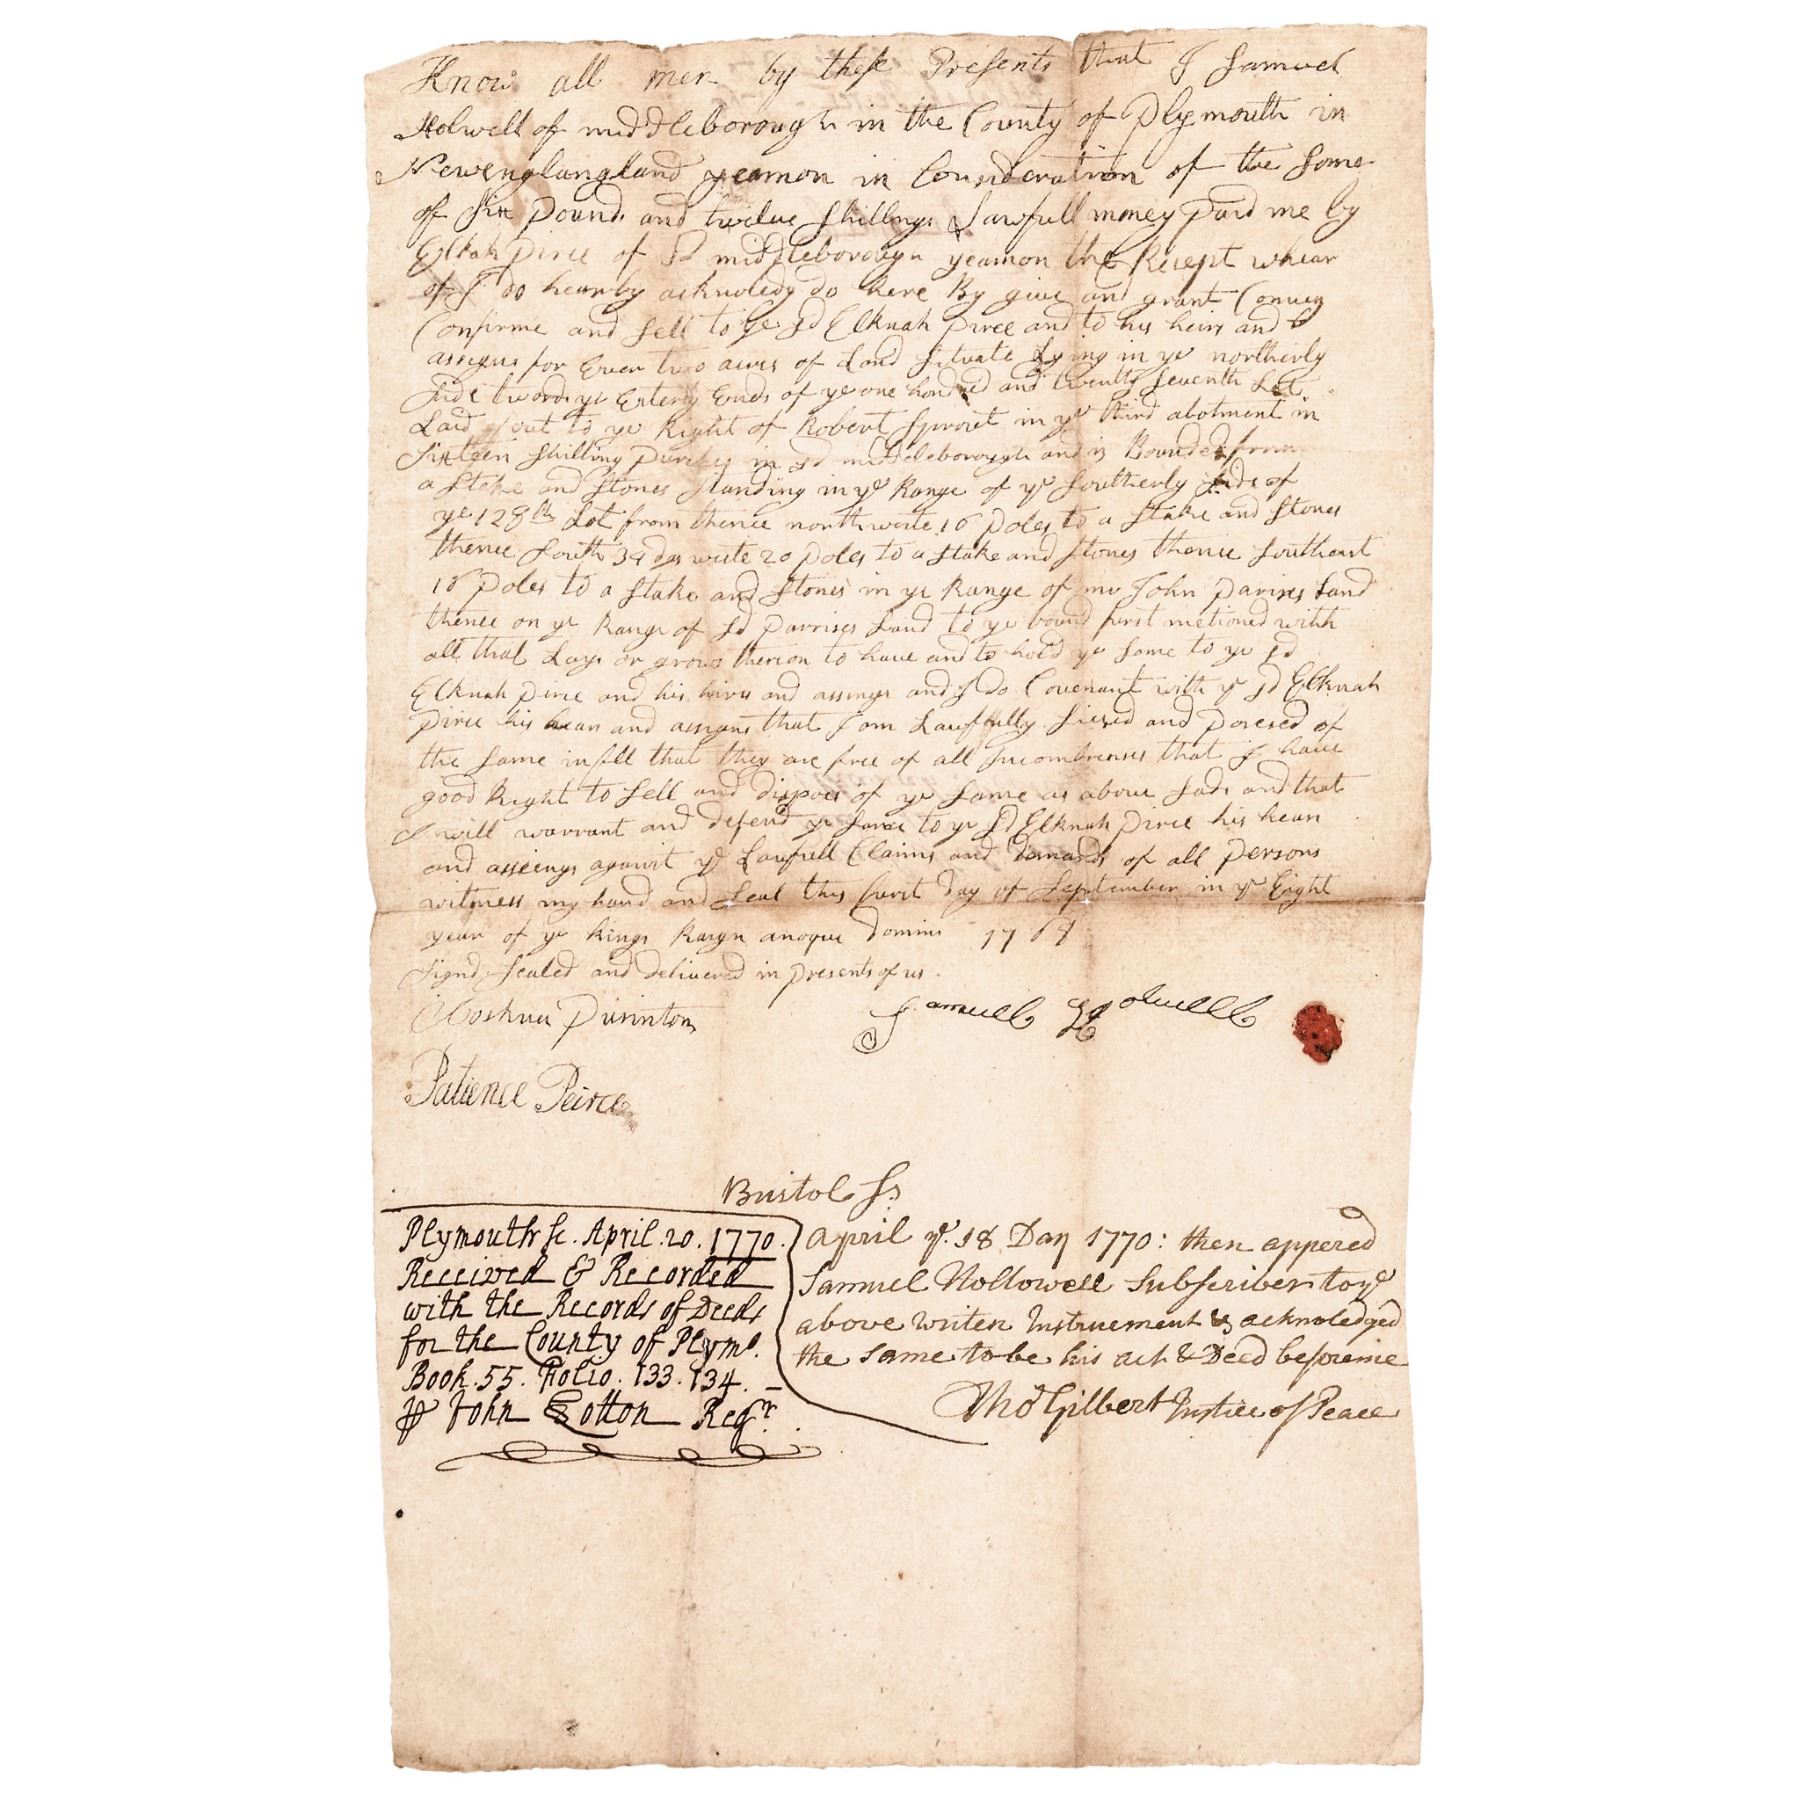 Know all men by these Presents that I Samuel
Holwell of middleborough in the County of Plymouth in
Newenglangland yeamon in Consideration of the Some
of six Pound and twelve shillings Lawfull money paid me by
Elknah Pirce of sd middleborough yeamon the Recept whear
of I do hearby acknoledg do here By give and grant Convey
Confirme and sell to ye sd Elknah Pirce and to his heirs and
assigns for Ever two acres of Land situate Lying in ye northerly
side twords ye Esterly Ends of ye one hondred and twentty seventh Lot
Laid out to ye Right of Robert Sprout in ye third alotment in
sixteen shilling Purches in sd middleborough and is Bounded from
a stake and stones standing in ye Range of ye southerly side of
ye 128th Lot from thence northweste 16 poles to a stake and stones
thence south 39 deg weste 20 poles to a stake and stones thence southeast
16 poles to a stake and stones in ye Range of mr John Parises Land
thence on ye Range of sd Parrises Land to ye bound furst metioned with
all that Lays or grows thereon to have and to hold ye same to ye sd
Elknah Pirce and his heirs and assings and I do Covenant with ye sd Elknah
Pirce his hean and assigns that I am Lawfully siesed and Posesed of
the same in fee that they are free of all Incombrenses that I have
good Right to sell and dispoes of ye same as above sade and that
I will warrant and defend ye same to ye sd Elknah Pirce his hean
and assiengs against ye Lawfull Claims and Demands of all Persons
witness my hand and seal this furst Day of September in ye Eight
year of ye kings Raign anoque Domini 1768
Signd sealed and delivered in presents of us
Joshua Purinton
Samuel Holwell
Patience Peirce
Bristol Ss
Plymouth Sc. April. 20. 1770.
Received & Recorded
with the Records of Deeds
for the County of Plymo.
Book. 55. Folio. 133. 134.
⅌ John Cotton Regr.
April ye. 18 Day 1770: then appered
Samuel Hollowell Subscriber to ye
above writen Instruement & acknoledged
the same to be his act & Deed before me
Tho Gilbert Justice of Peace